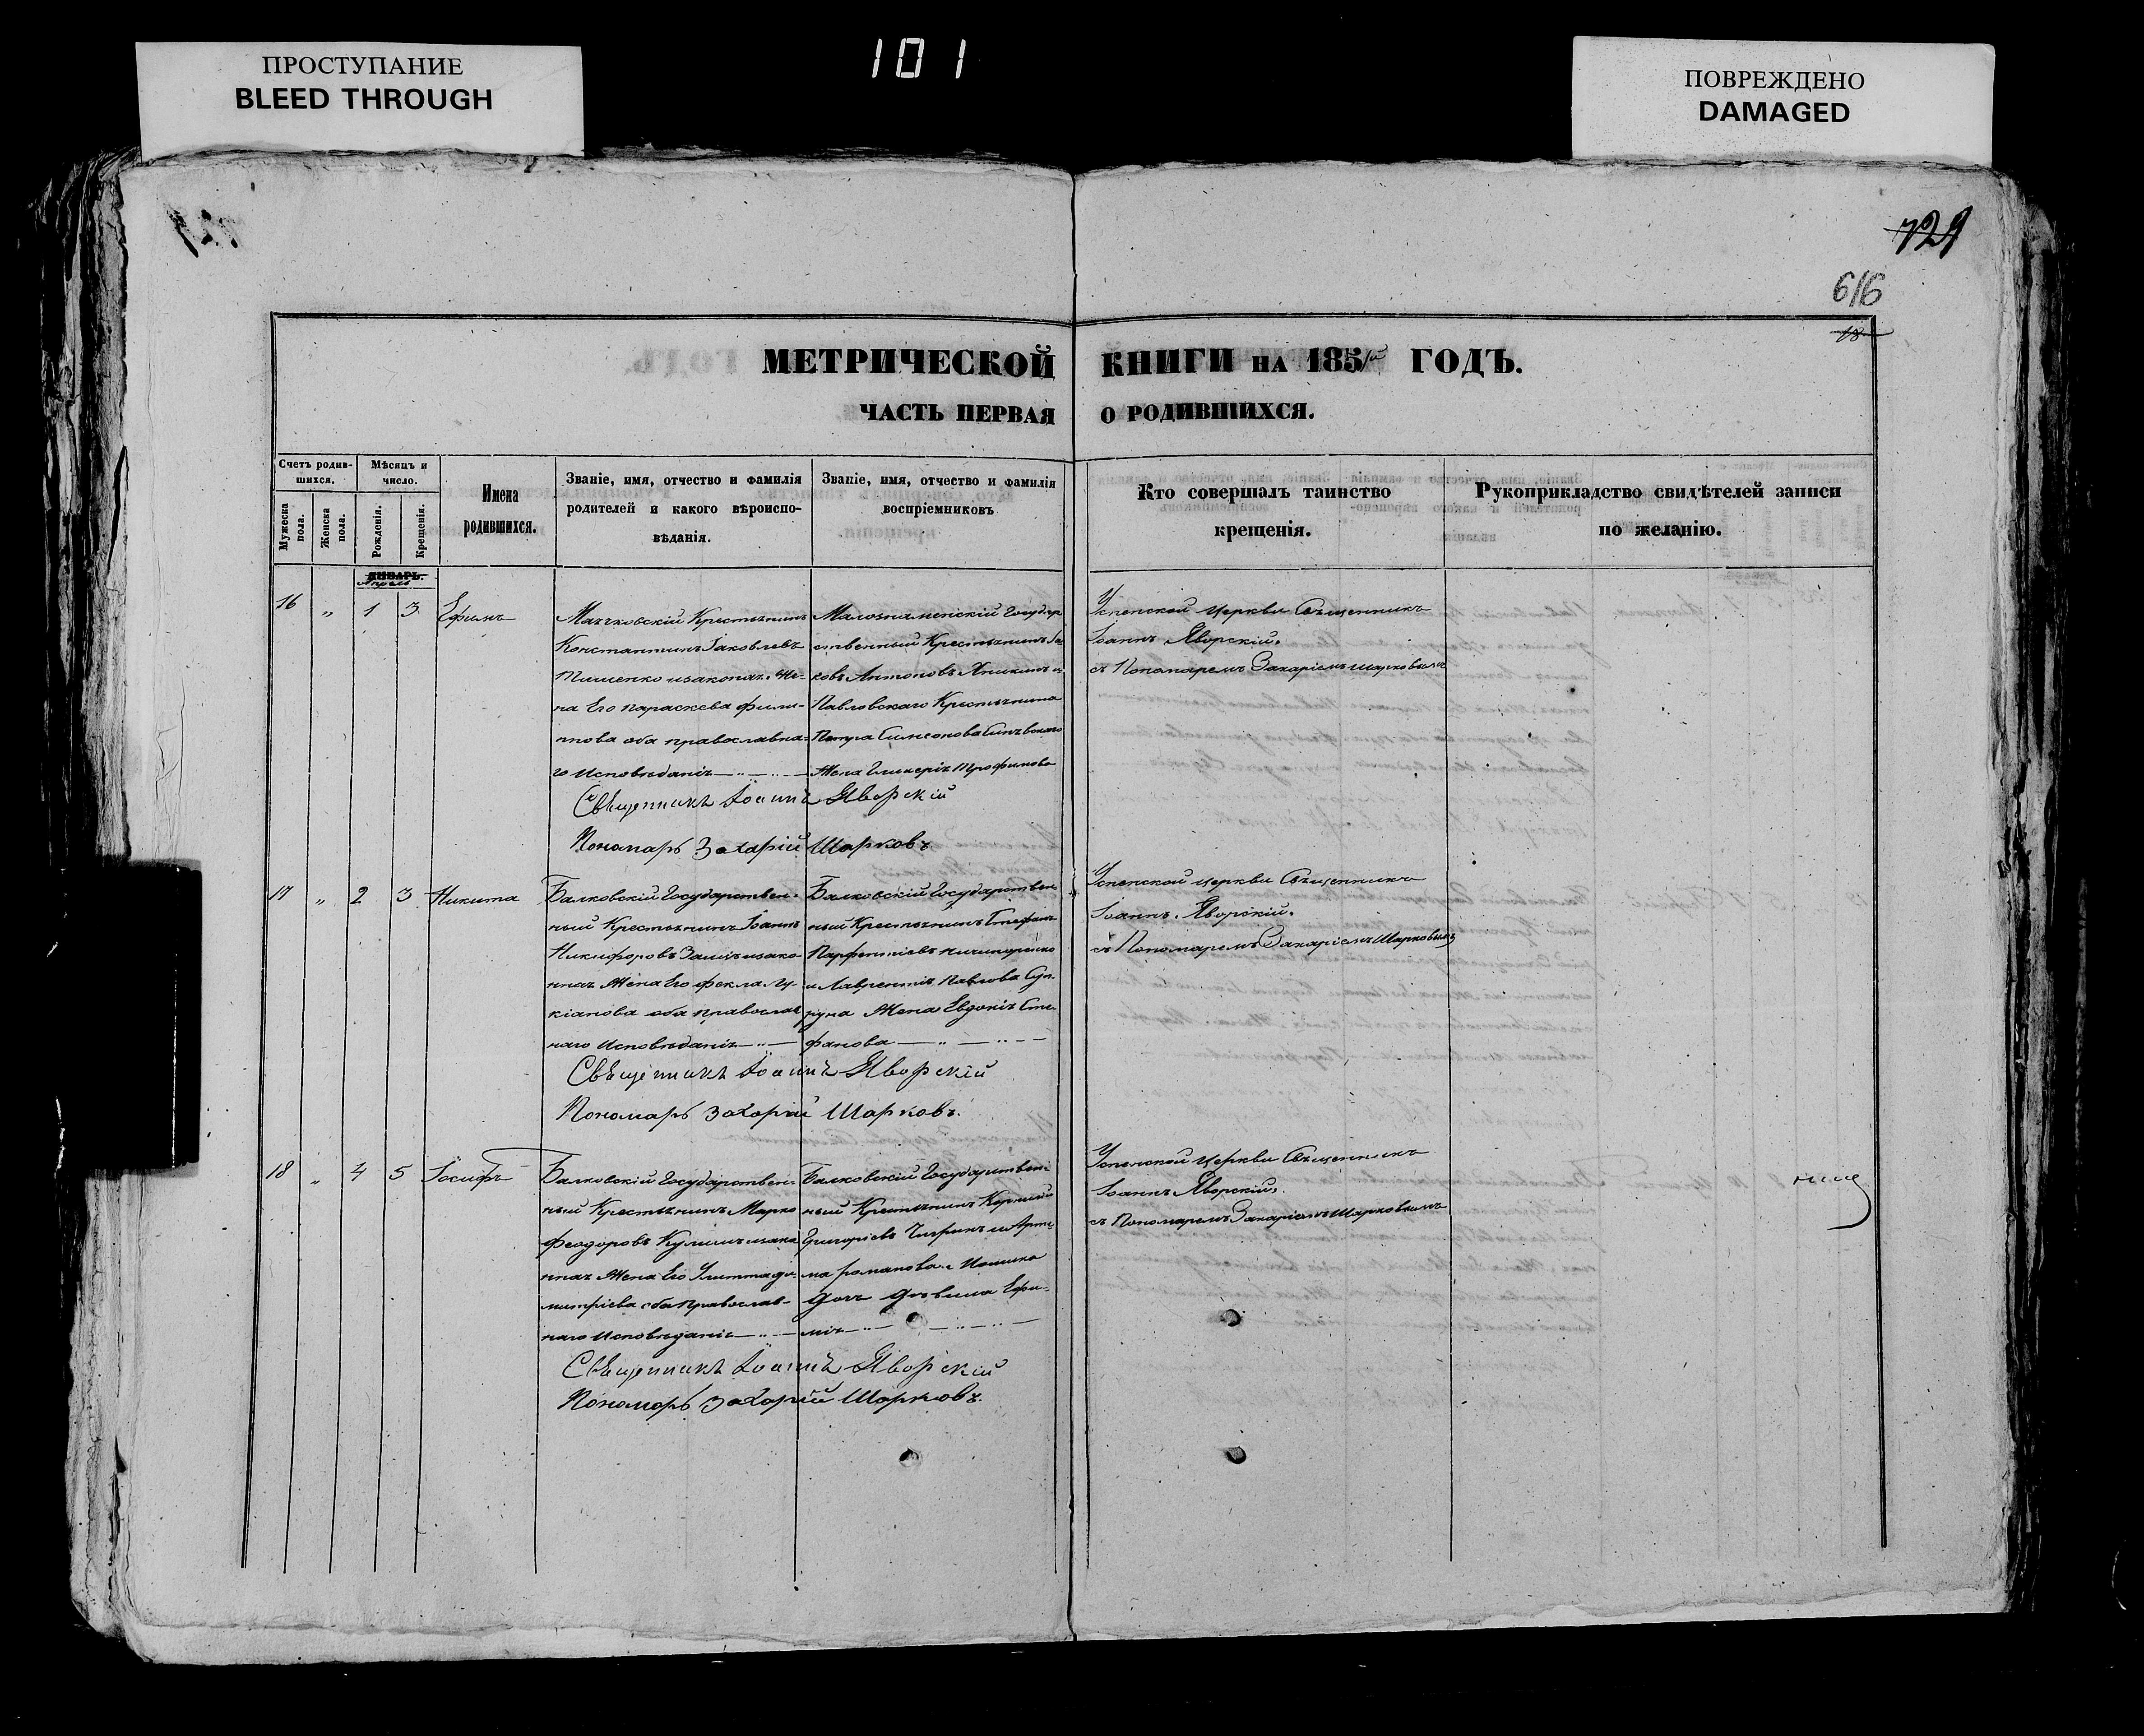 ПРОСТУПАНИЕ
BLEED THROUGH
101
ПОВРЕЖДЕНО
DAMAGED
729
616
МЕТРИЧЕСКОЙ КНИГИ НА 1851й ГОДЪ.
ЧАСТЬ ПЕРВАЯ О РОДИВШИХСЯ.
Счетъ родив-
шихся.
Мужеска пола.
Женска пола.
Мѣсяцъ и
число.
Рожденія.
Крещенія.
Имена
родившихся.
Званіе, имя, отчество и фамилія
родителей и какого вѣроиспо-
вѣданія.
Званіе, имя, отчество и фамилія
воспріемниковъ
Кто совершалъ таинство
крещенія.
Рукоприкладство свидѣтелей записи
по желанію.
ЯНВАРЬ.
Апрель
16 " 1 3 Ефимъ
Крестьянинъ
Константинъ Іаковлевъ
Тищенко изаконая Же-
на Его Параскева Фили-
пова оба православна-
го Исповѣданія
Государ
ственный Крестьянинъ Іа-
ковъ Антоновъ
Павловскаго Крестьянина
Петра Симеонова
Жена Гликерія Трофимова
Успенской Церкви Священникъ
Іоаннъ Яворскій.
съ Пономаремъ Захаріемъ Шарковымъ
Священникъ Іоаннъ Яворскій
Пономарь Захарій Шарковъ
17 " 2 3 Никита
Балковскій Государствен-
ный Крестьянинъ Іоаннъ
Никифоровъ изако
нная Жена Его Фекла Лу-
кіанова оба Православ
наго Исповѣданія
Балковскій Государствен
ный Крестьянинъ Стефанъ
Парфентіевъ Ничипоренко
и Лаврентія Павлова
Жена Евдокія Сте-
фанова
Успенской Церкви Священникъ
Іоаннъ Яворскій.
съ Пономаремъ Захаріемъ Шарковымъ
Священникъ Іоаннъ Яворскій
Пономарь Захарій Шарковъ.
18 " 4 5 Іосифъ
Балковскій Государствен-
ный Крестьянинъ Марко
Феодоровъ изако
нная Жена Его Улитта Ди-
митріева оба Православ-
наго Исповѣданія
Балковскій Государствен-
ный Крестьянинъ Корнилій
Григоріевъ
романова
дочь Дѣвица Ефи-
мія
Успенской Церкви Священникъ
Іоаннъ Яворскій.
съ Пономаремъ Захаріемъ Шарковымъ
Священникъ Іоаннъ Яворскій
Пономарь Захарій Шарковъ.